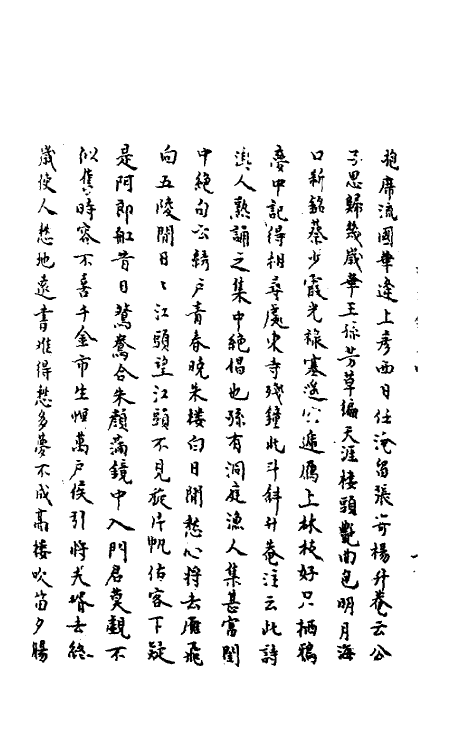 犀流國華逢上彥西日任淹留張奇楊升菴云公
子思歸幾歲華王孫芳草徧天涯樓頭艷曲包明月海
口新銘蔡少霞光祿塞遥空遞鴈上林枝好只栖鴉
夢中記得相尋處東寺殘鐘北斗斜升菴注云此詩
滇人熟誦之集中絕倡也孫有洞庭漁人集甚富閨
中絕句云綺戶青春晚朱樓白日閒愁心將去雁飛
向五陵間日〻江頭望江頭不見旋片帆估客下疑
是阿郎船昔日鴛鴦合朱顏滿鏡中入門君莫覷不
似舊時容不喜千金市生憎萬戶侯引將夫壻去終
歲使人愁地遠書難得愁多夢不成高樓吹笛夕腸